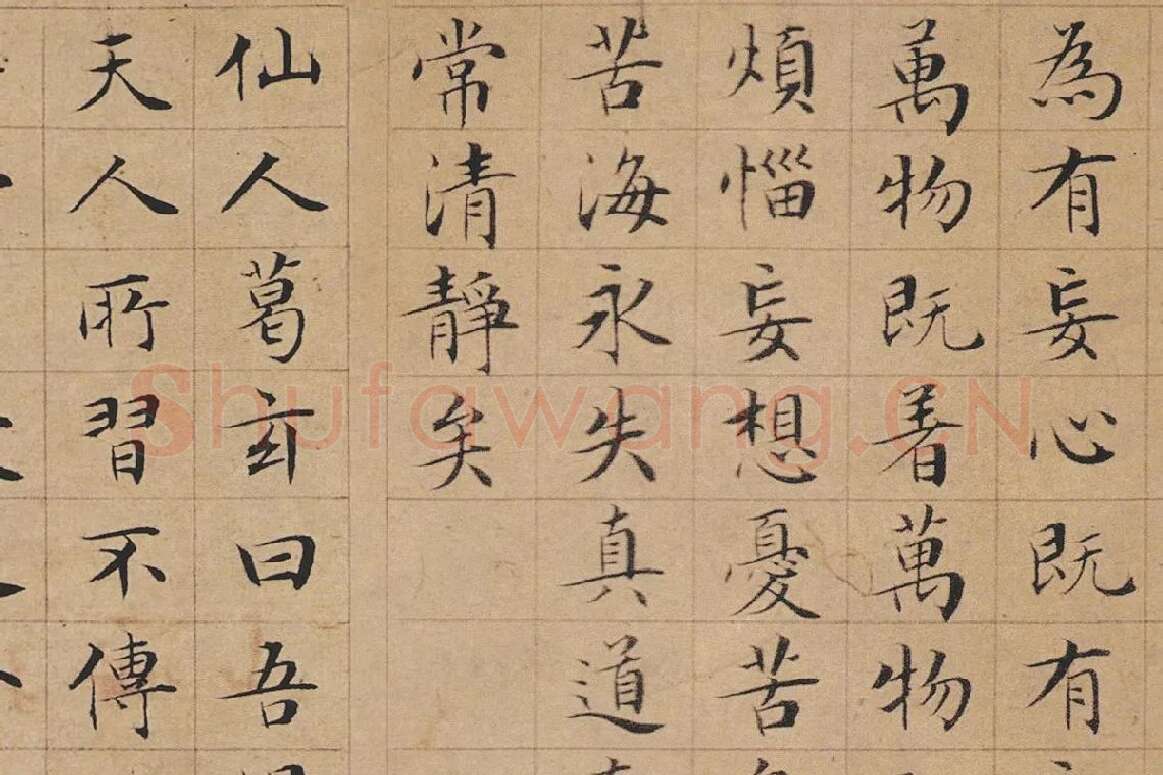 為有妄心既有
萬物既着萬物
煩惱妄想憂苦
苦海永失真道
常清静矣
仙人葛玄曰吾
天人所習不傳
Shufawang.CN